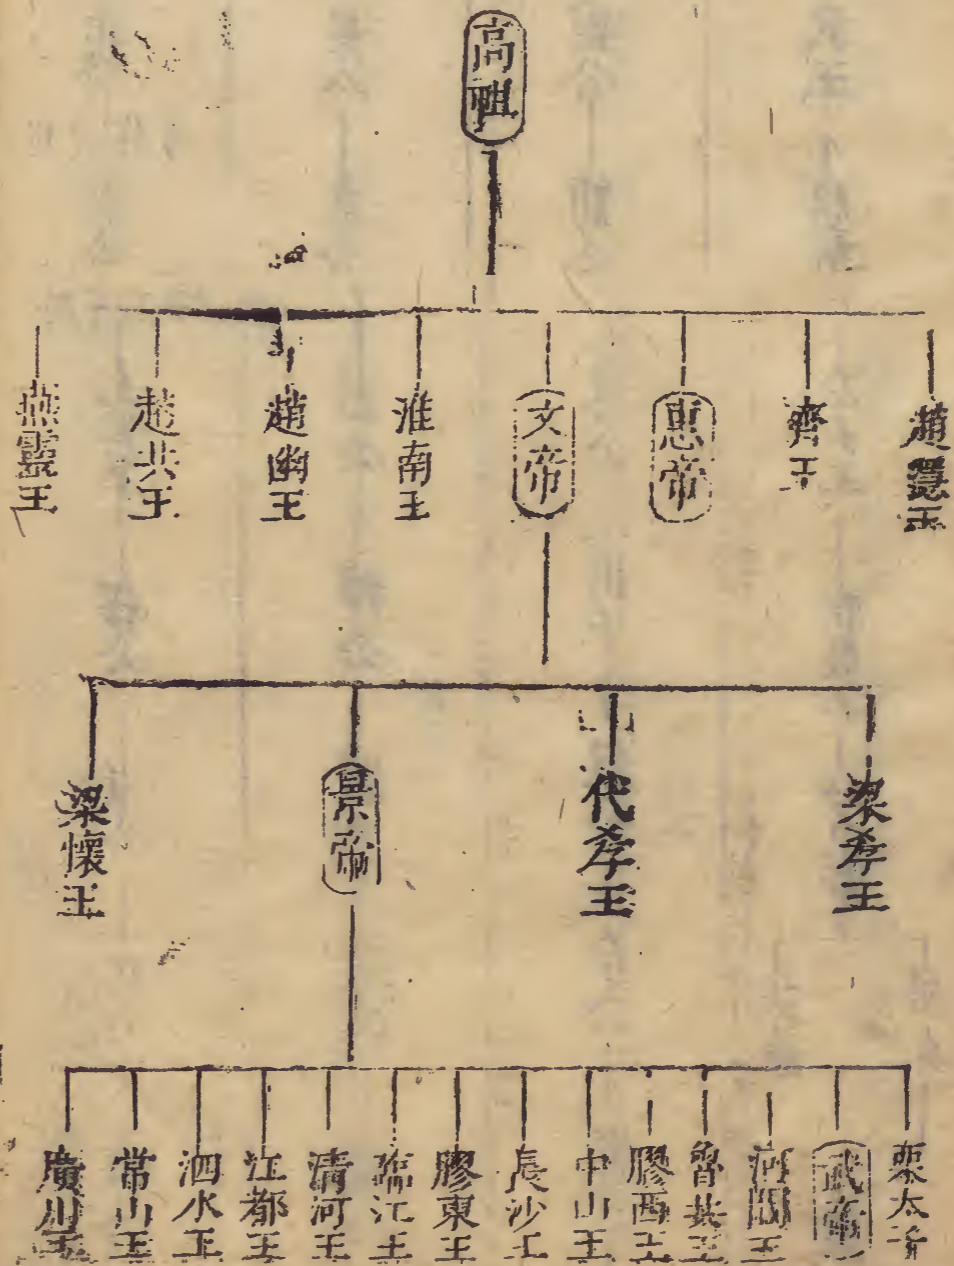 高祖
趙隱王
齊王
惠帝
文帝
淮南王
趙幽王
趙共王
燕靈王
梁孝王
代孝王
景帝
梁懷王
栗太子
武帝
河間王
魯共王
膠西王
中山王
長沙王
膠東王
臨江王
清河王
江都王
泗水王
常山王
廣川王